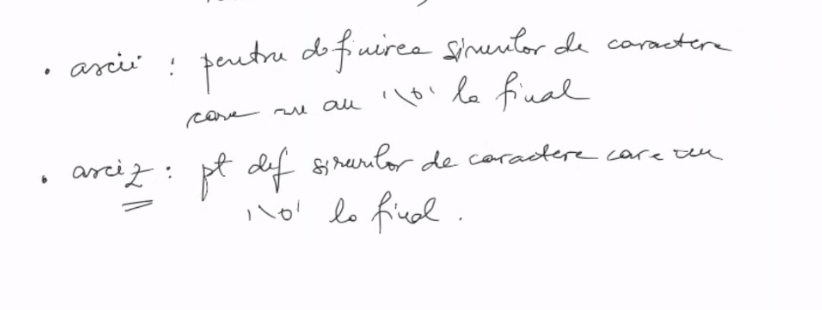 . ascii : pentru definirea sirurilor de caractere
care nu au '\0' la final
. asciz : pt def sirurilor de caractere care au
'\0' la final .